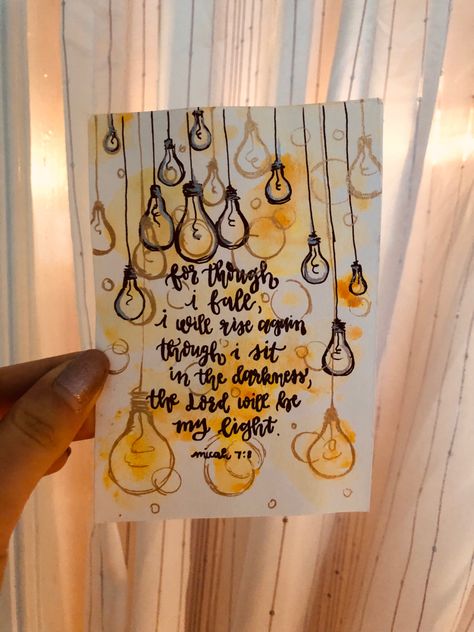 for though
i fall,
i will rise again
though i sit
in the darkness,
the Lord will be
my light.
micah 7:8